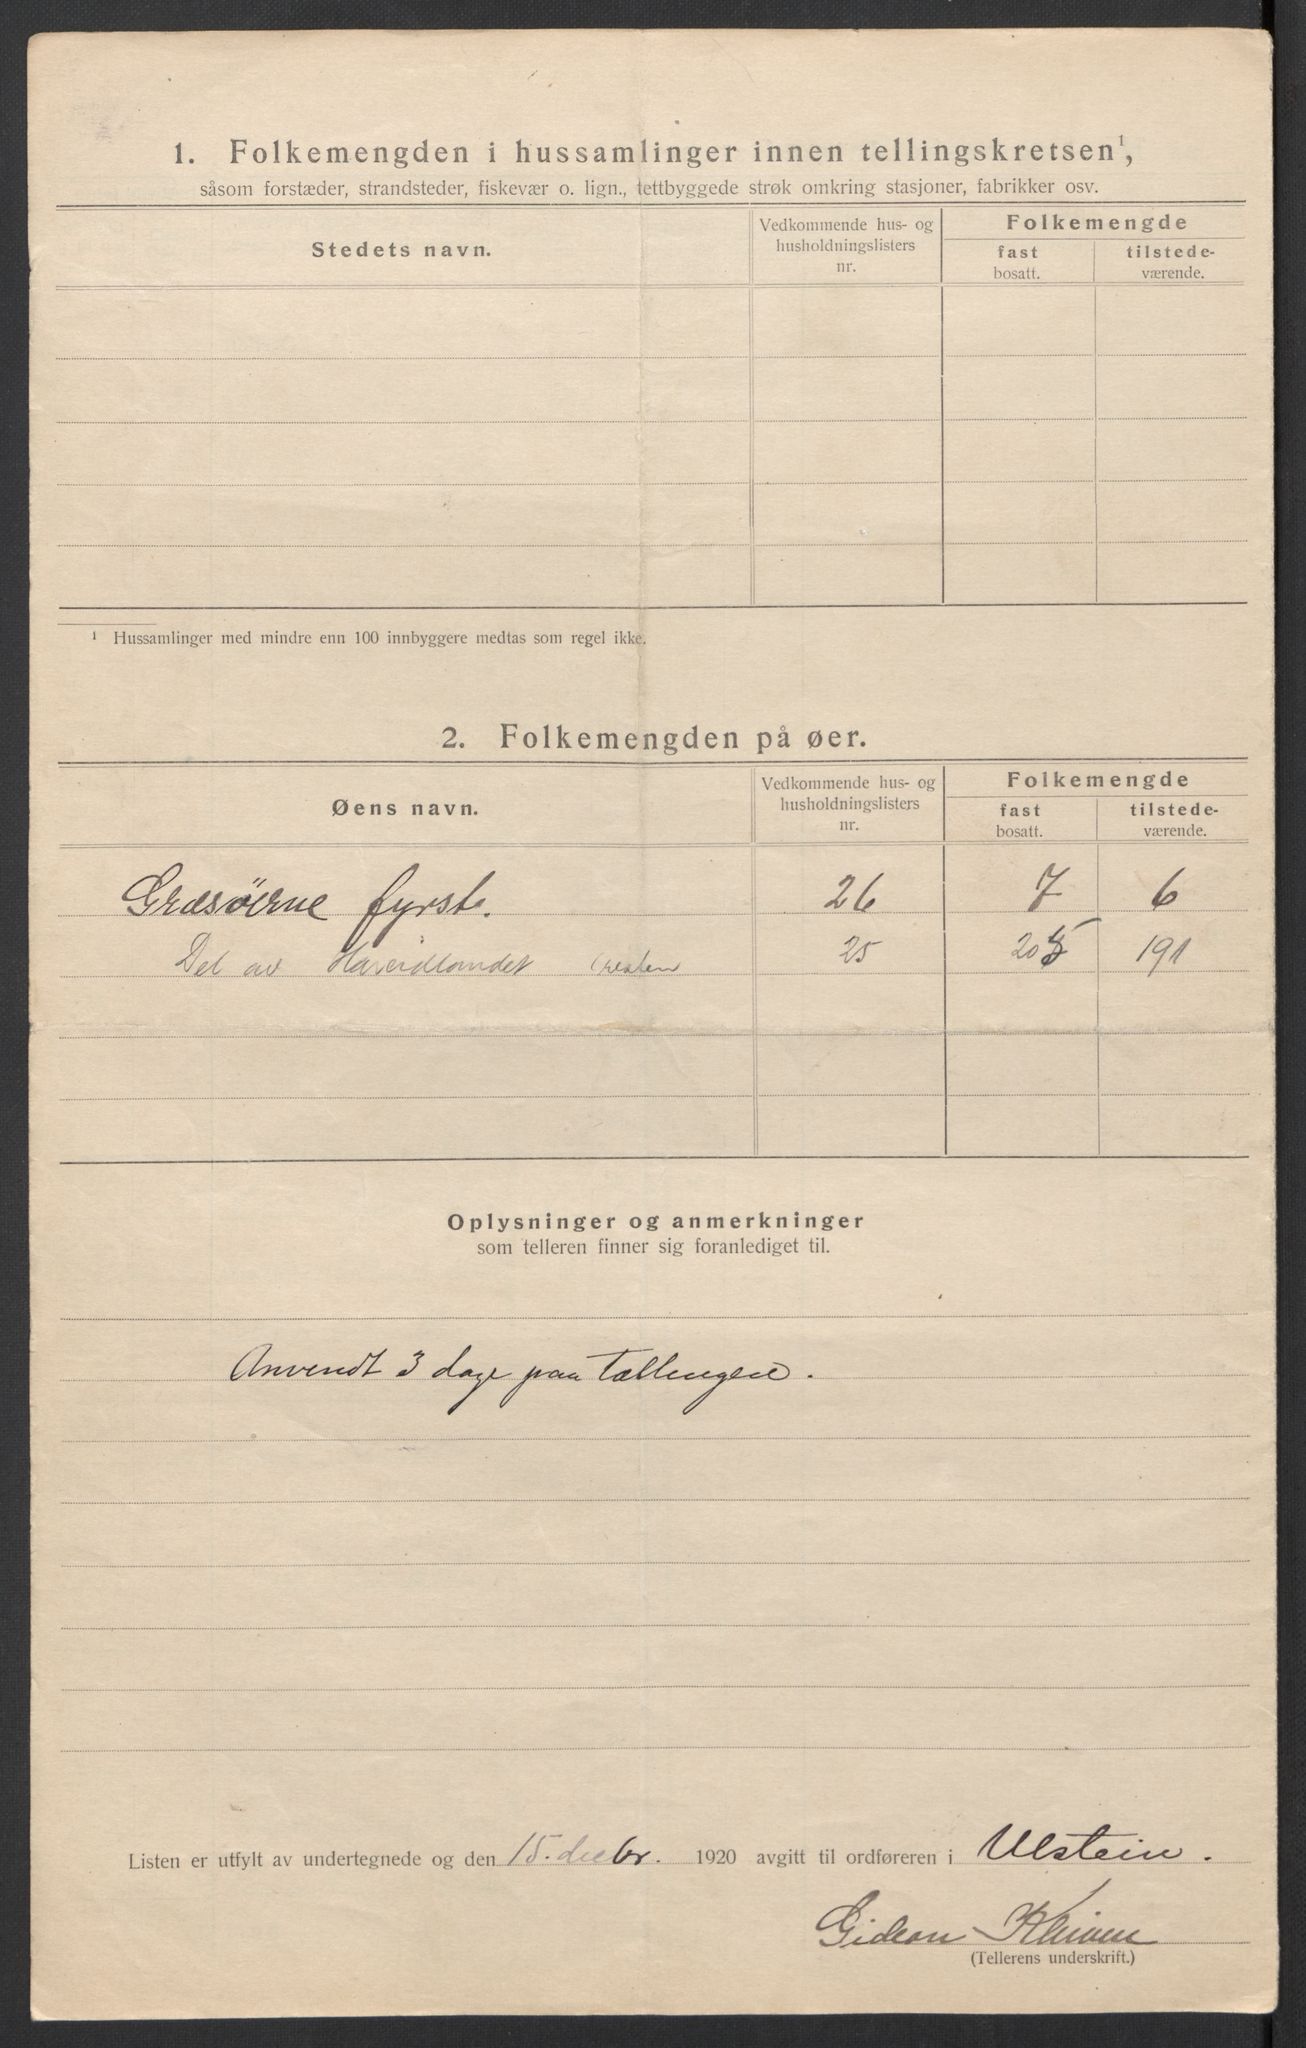 1. Folkemengden i hussamlinger innen tellingskretsen¹,
såsom forstæder, strandsteder, fiskevær o. lign., tettbyggede strøk omkring stasjoner, fabrikker osv.
Stedets navn.
Vedkommende hus- og husholdningslisters nr.
Folkemengde
fast bosatt.
tilstede-værende.
¹ Hussamlinger med mindre enn 100 innbyggere medtas som regel ikke.
2. Folkemengden på øer.
Øens navn.
Vedkommende hus- og husholdningslisters nr.
Folkemengde
fast bosatt.
tilstede-værende.
Græsöerne fyrst. 26 7 6
Del av Hareidlandet (resten 25 205 191
Oplysninger og anmerkninger
som telleren finner sig foranlediget til.
Anvendt 3 dage paa Tællingen.
Listen er utfylt av undertegnede og den 15. decbr. 1920 avgitt til ordføreren i Ulstein.
Gideon Kleiven
(Tellerens underskrift.)